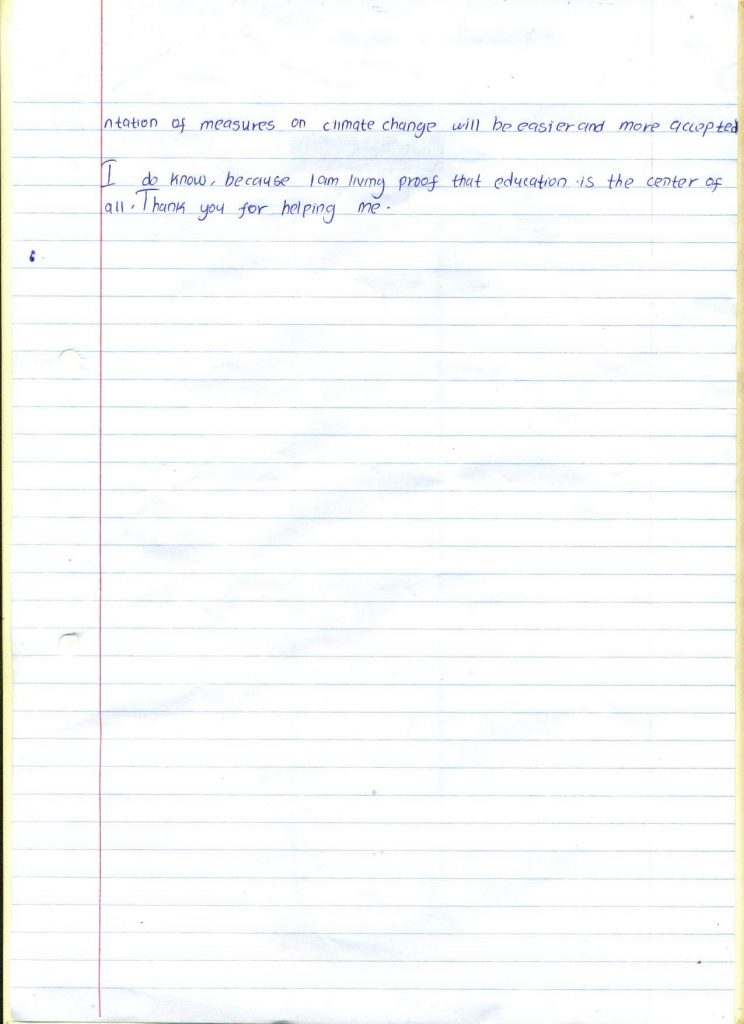 ntation of measures on climate change will be easier and more accepted
I do know, because I am living proof that education is the center of
all. Thank you for helping me.